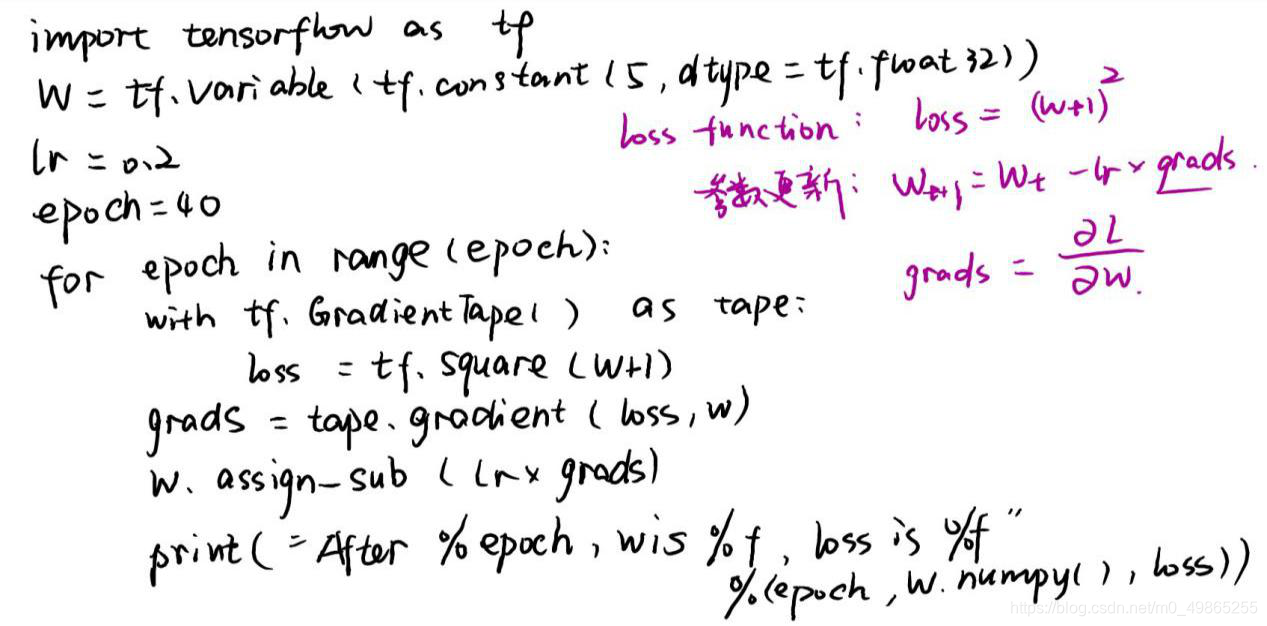 import tensorflow as tf
W = tf.Variable (tf.constant (5, dtype = tf.float 32))
loss function: loss = (w+1)²
lr = 0.2
参数更新: Wt+1 = Wt - lr × grads.
epoch = 40
grads = ∂L/∂w.
for epoch in range (epoch):
with tf. GradientTape( ) as tape:
loss = tf. square (W+1)
grads = tape. gradient (loss, w)
W. assign_sub (lr × grads)
print( "After % epoch, w is %f, loss is %f"
% (epoch, W.numpy( ), loss))
https://blog.csdn.net/m0_49865255